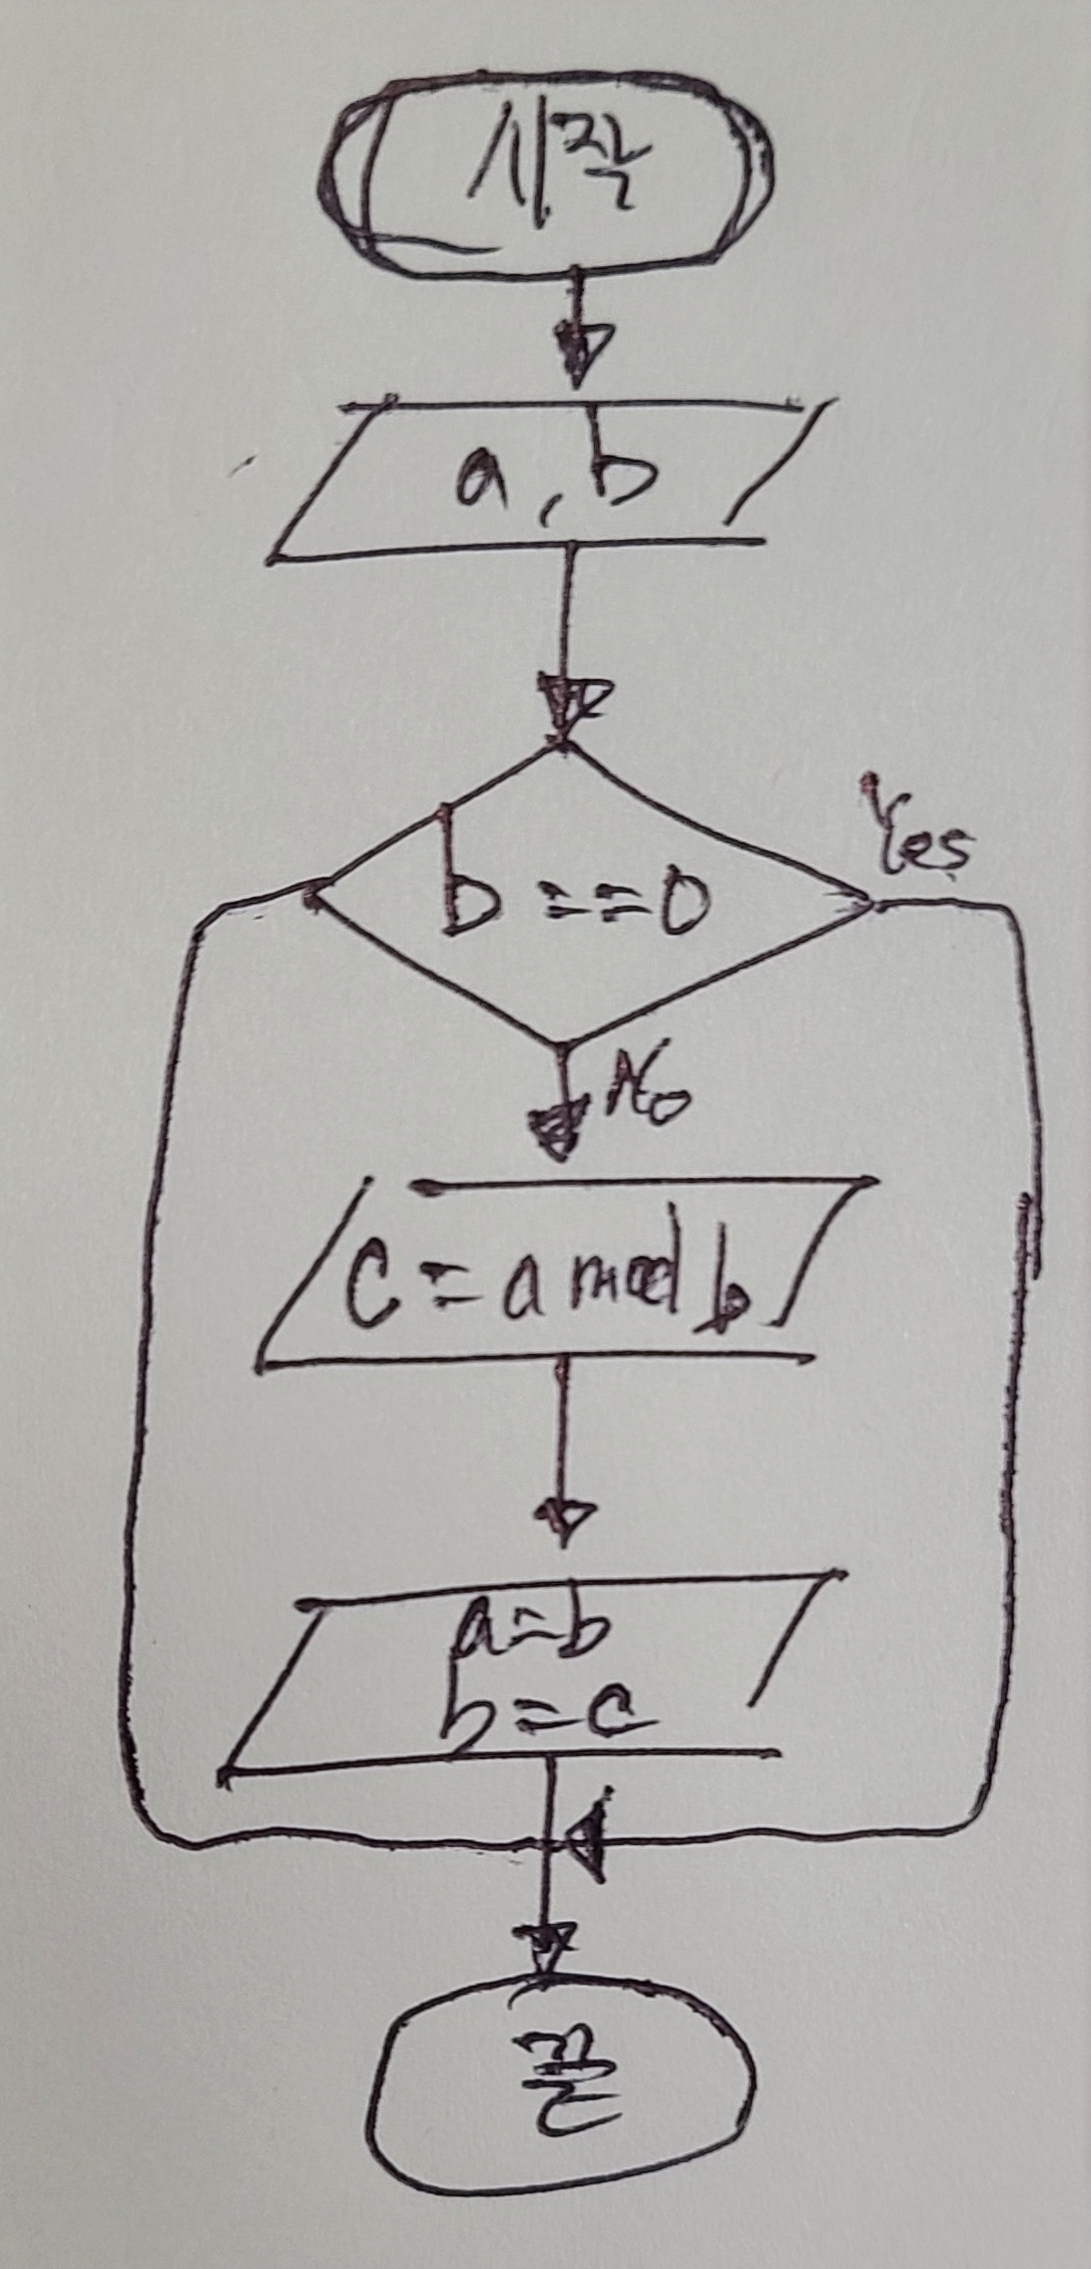 시작
a, b
b == 0
Yes
No
c = a mod b
a=b
b=c
끝